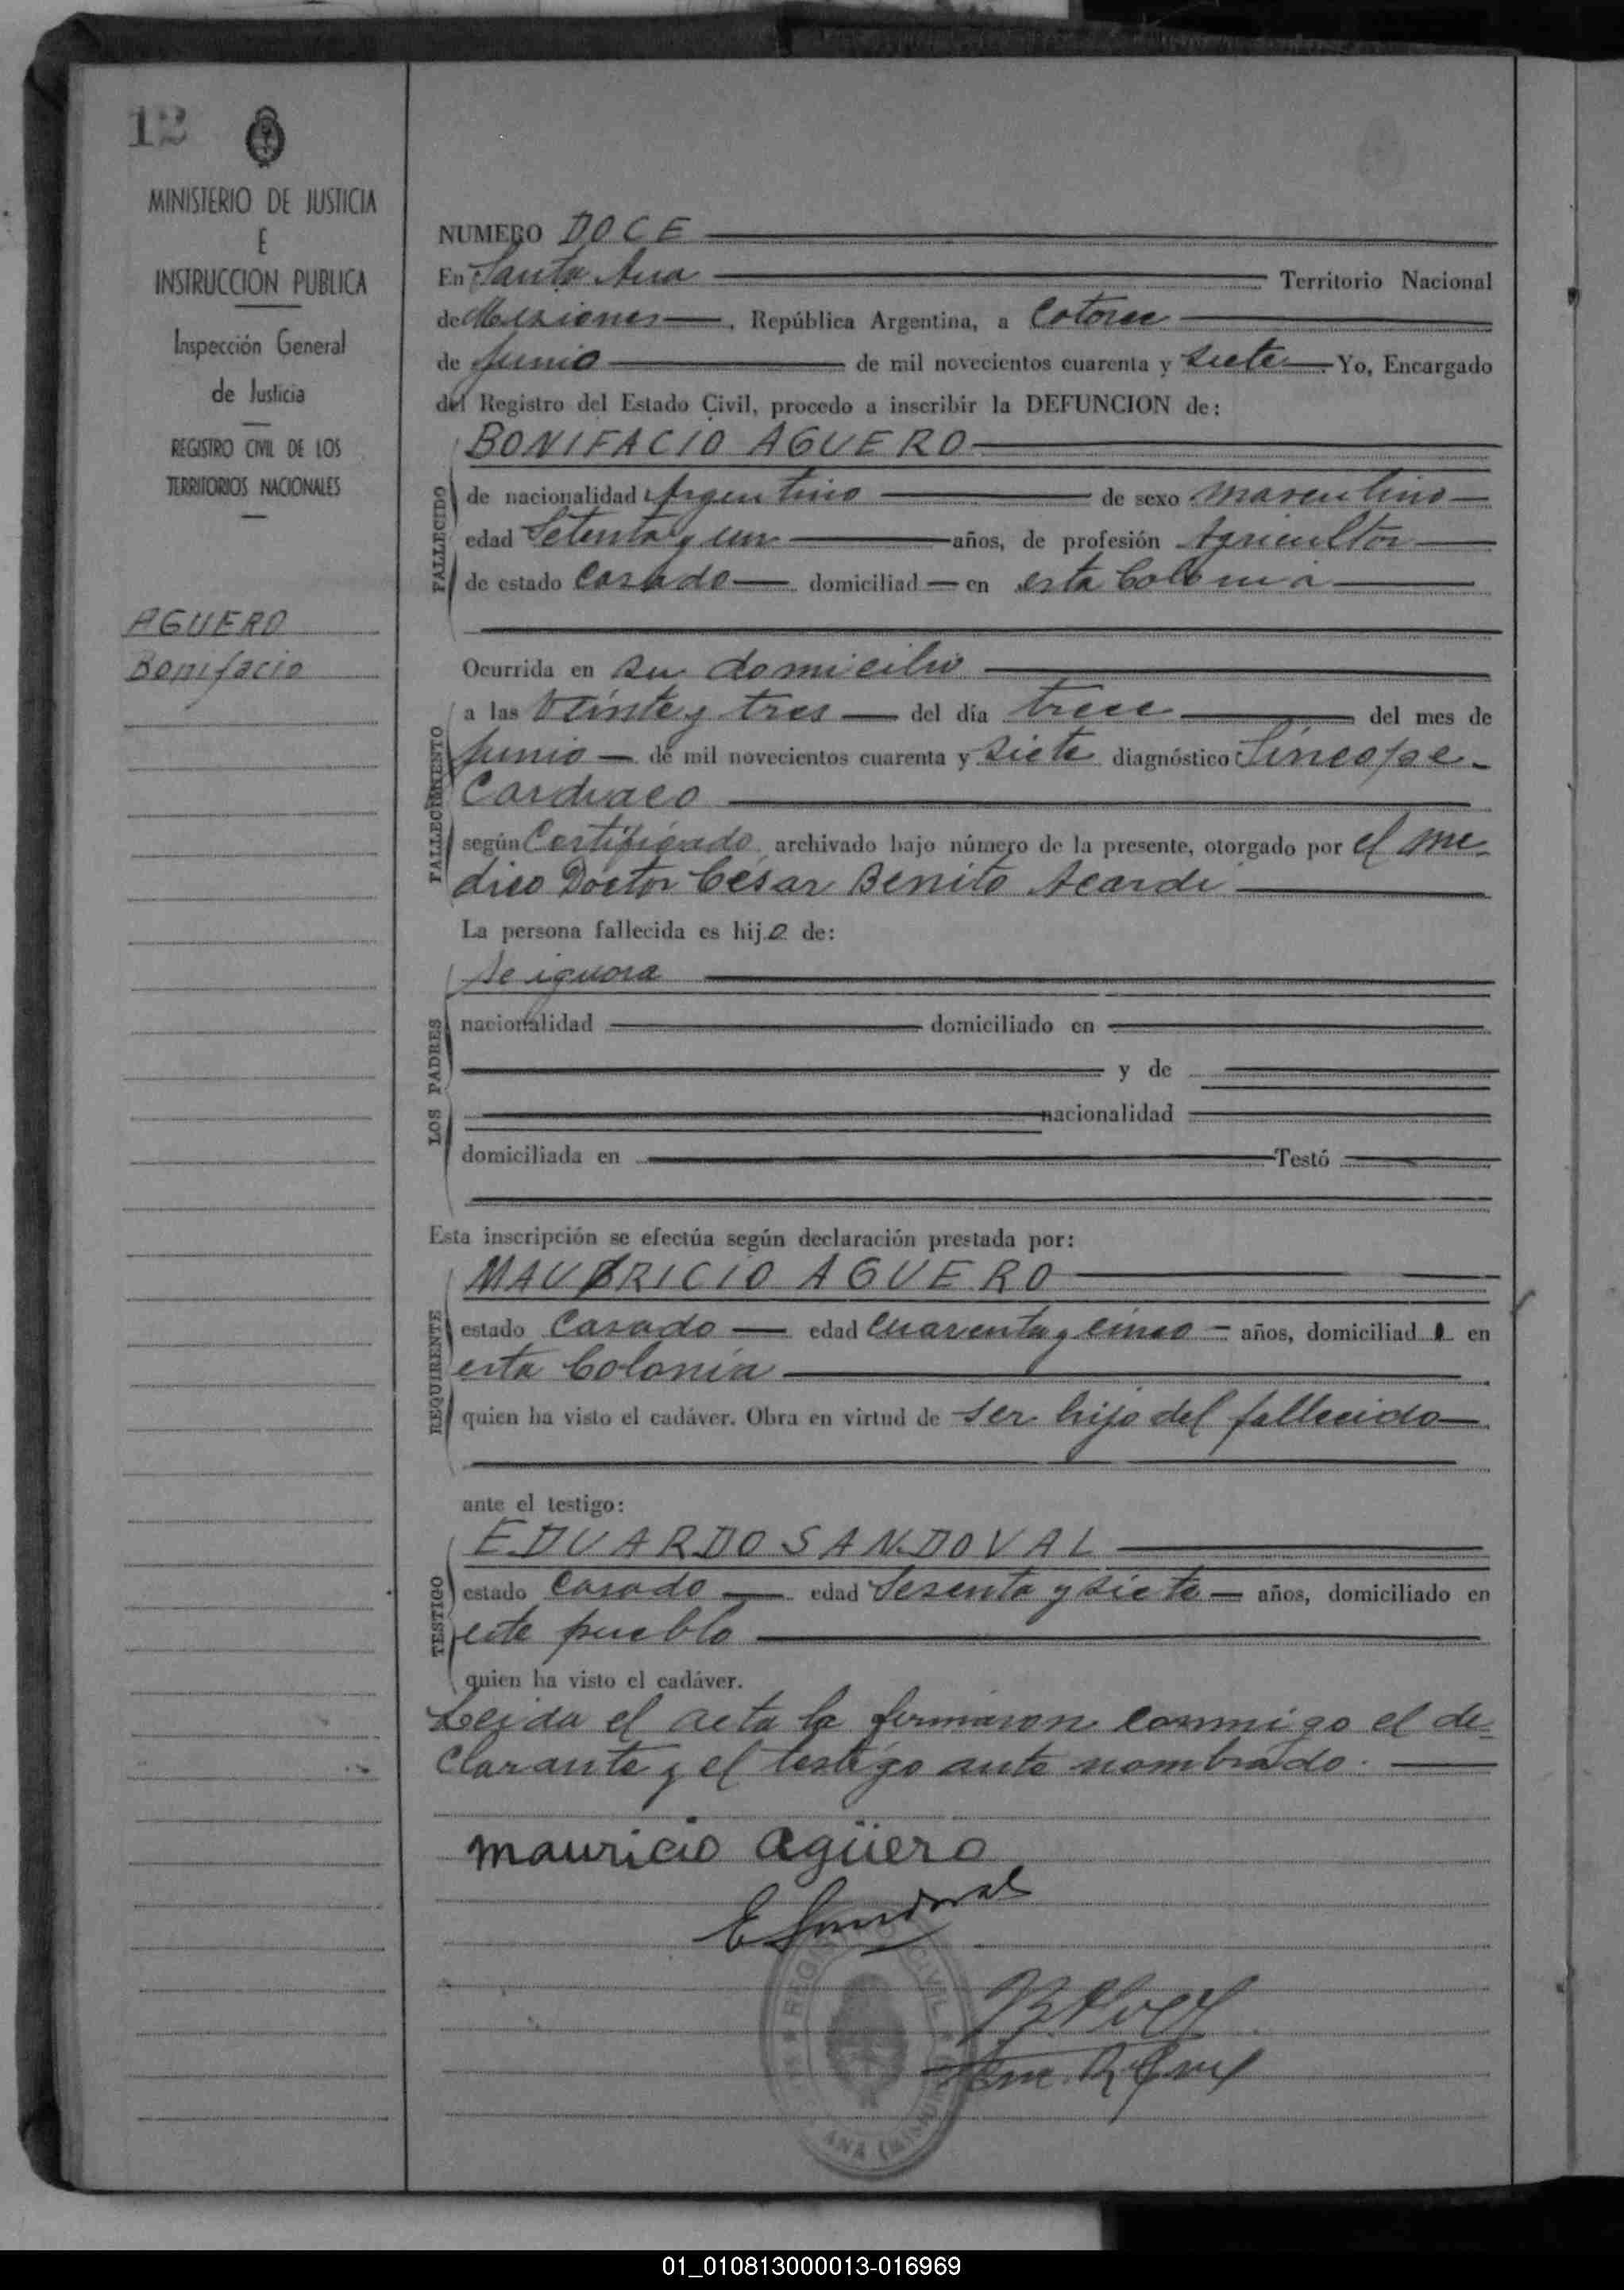 12
MINISTERIO DE JUSTICIA
E
INSTRUCCION PUBLICA
Inspección General
de Justicia
REGISTRO CIVIL DE LOS
TERRITORIOS NACIONALES
AGUERO
Bonifacio
NUMERO DOCE
En Santa Ana Territorio Nacional
de Misiones, República Argentina, a Catorce
de Junio de mil novecientos cuarenta y siete. Yo, Encargado
del Registro del Estado Civil, procedo a inscribir la DEFUNCION de:
BONIFACIO AGUERO
FALLECIDO
de nacionalidad Argentino de sexo masculino
edad Setenta y un años, de profesión Agricultor
de estado Casado domiciliad en esta Colonia
Ocurrida en su domicilio
FALLECIMIENTO
a las Veinte y tres del día trece del mes de
Junio de mil novecientos cuarenta y siete diagnóstico Síncope
Cardiaco
según Certificado archivado bajo número de la presente, otorgado por el me-
dico Doctor César Benito Acardi
La persona fallecida es hijo de:
LOS PADRES
Se ignora
nacionalidad domiciliado en
y de
nacionalidad
domiciliada en Testó
Esta inscripción se efectúa según declaración prestada por:
REQUIRENTE
MAURICIO AGUERO
estado Casado edad Cuarenta y cinco años, domiciliado en
esta Colonia
quien ha visto el cadáver. Obra en virtud de ser hijo del fallecido
ante el testigo:
TESTIGO
EDUARDO SANDOVAL
estado Casado edad Sesenta y siete años, domiciliado en
este pueblo
quien ha visto el cadáver.
Leida el acta la firmaron conmigo el de-
clarante y el testigo ante nombrado.
mauricio agüero
E Sandoval
REGISTRO CIVIL
01_010813000013-016969